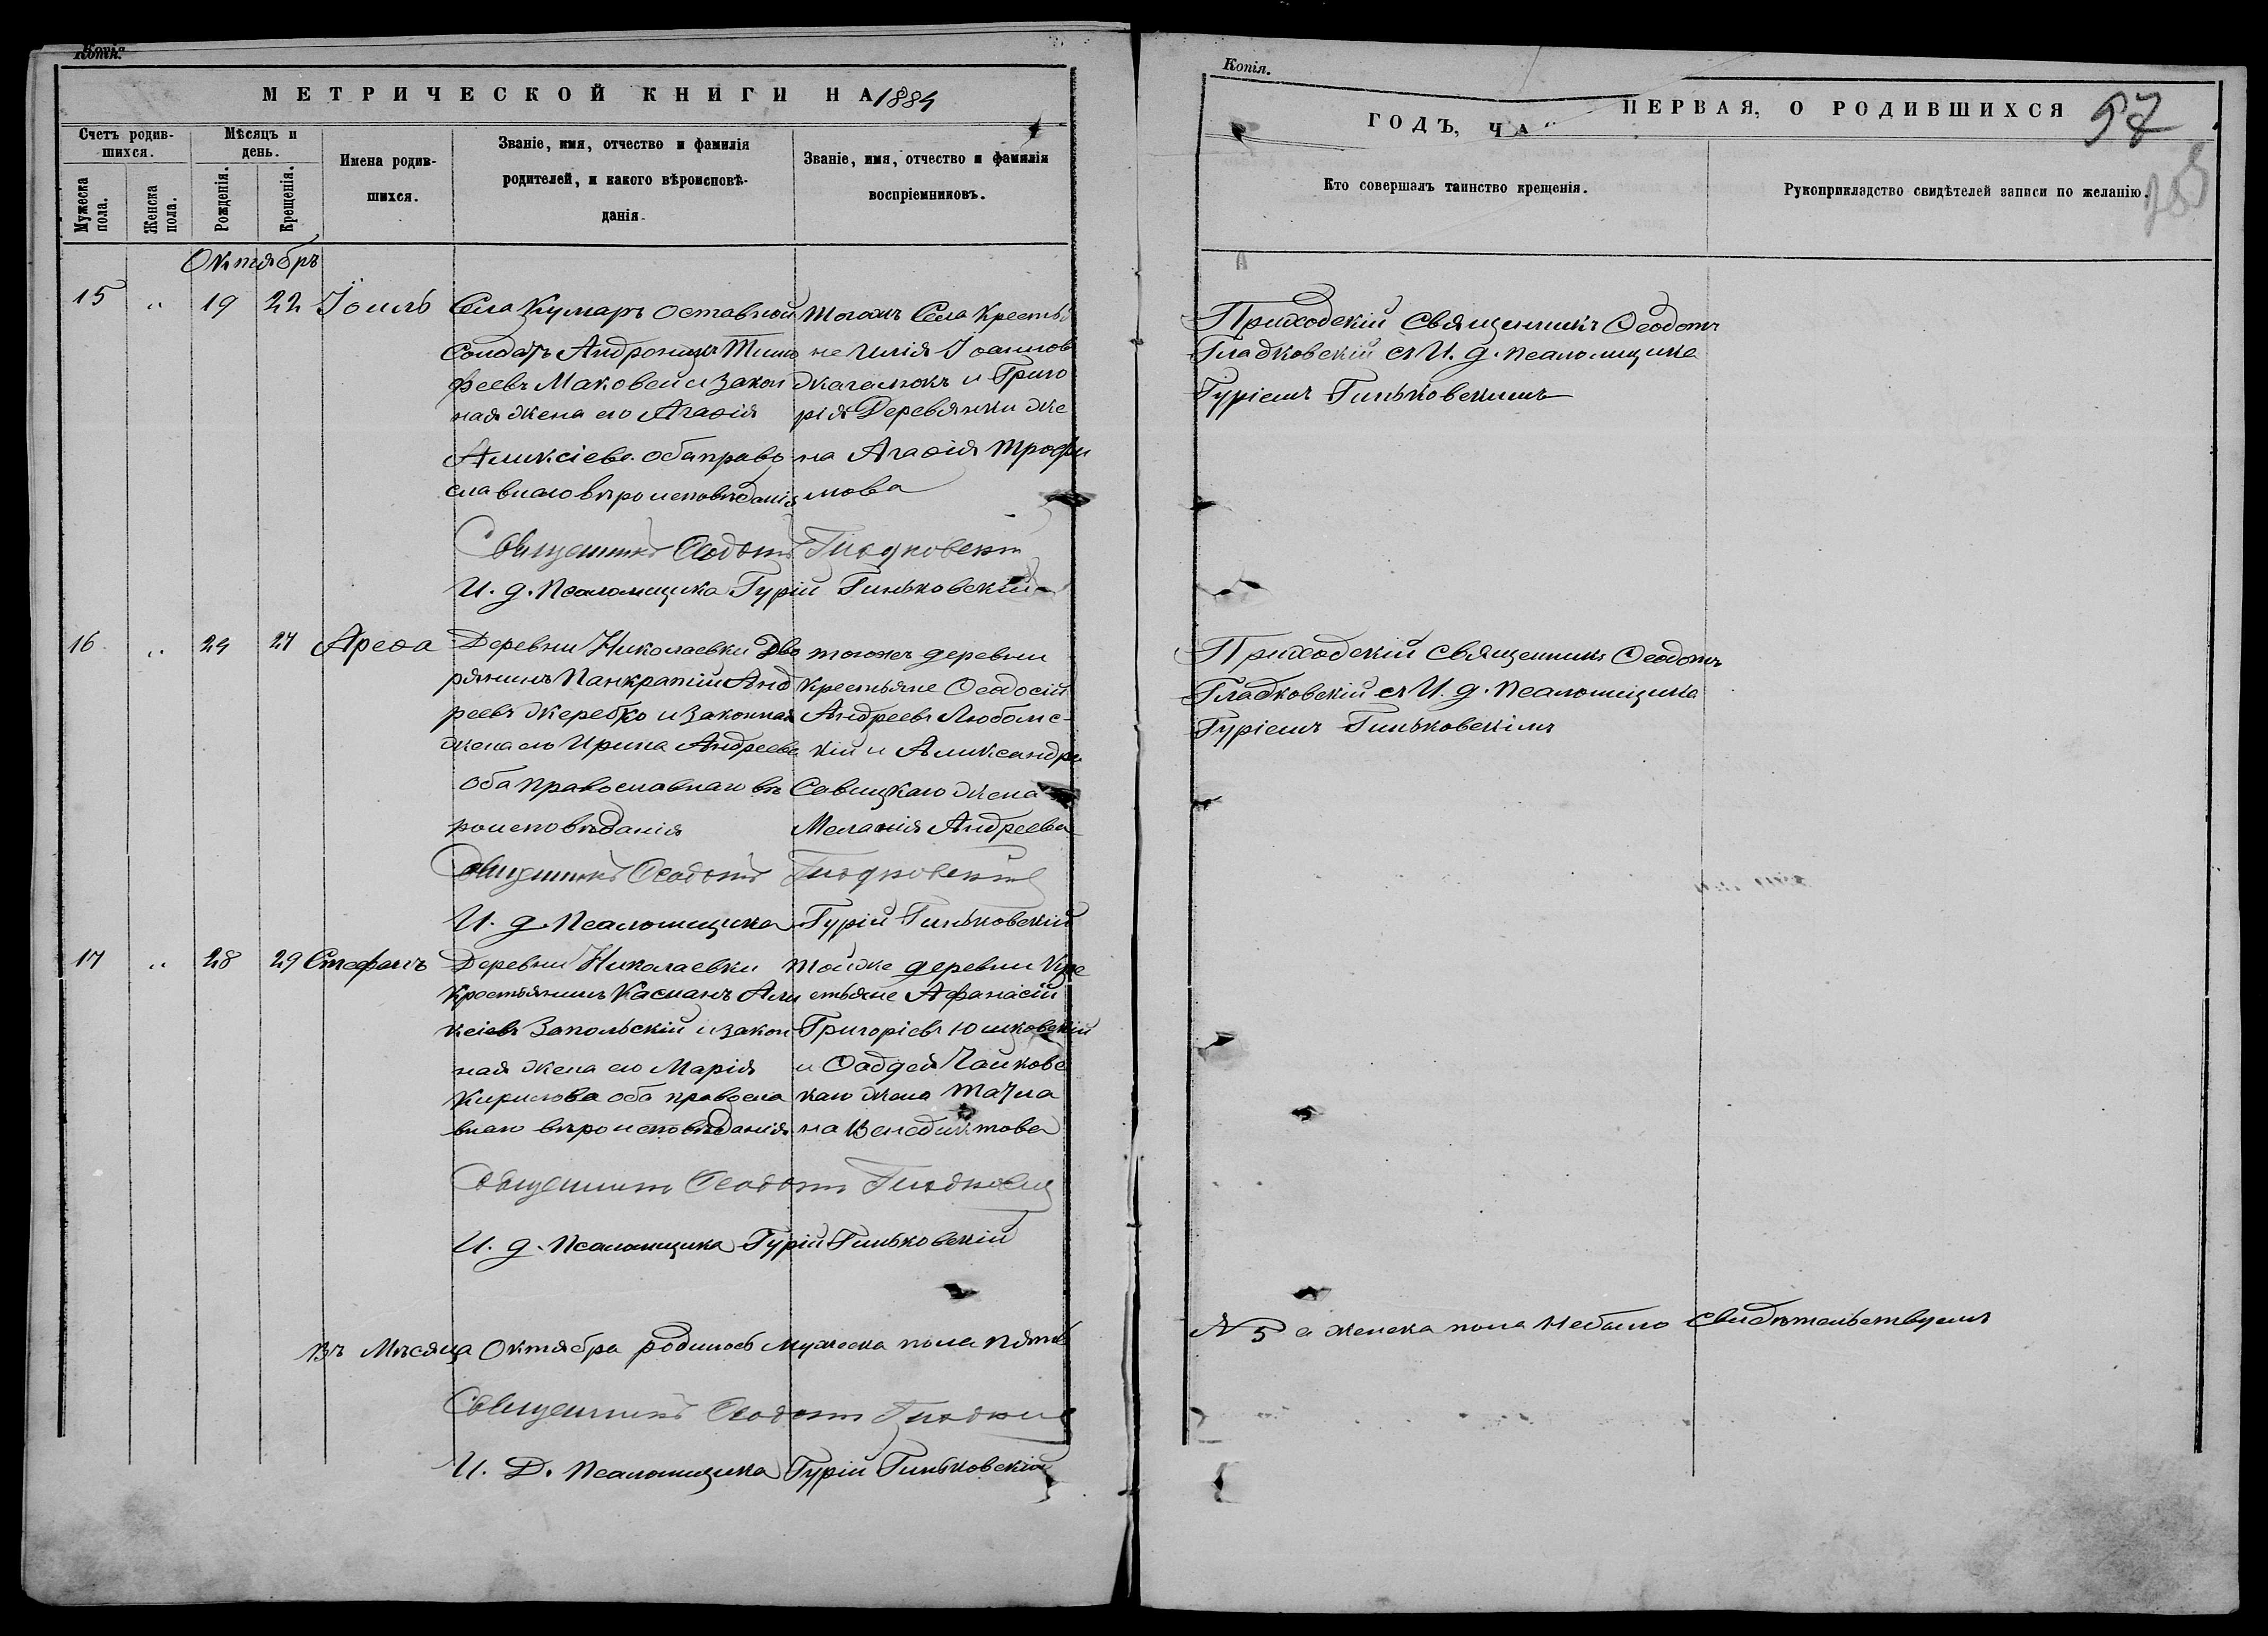 Копія.
МЕТРИЧЕСКОЙ КНИГИ НА 1884
Счетъ родив-
шихся.
Мѣсяцъ и
день.
Мужеска
пола.
Женска
пола.
Рожденія.
Крещенія.
Имена родив-
шихся.
Званіе, имя, отчество и фамилія
родителей, и какого вѣроисповѣ-
данія.
Званіе, имя, отчество и фамилія
воспріемниковъ.
Октябръ
15 " 19 22 Іоиль
Села Кумаръ отставной
Солдатъ Андроникъ Тимо
феевъ Маковей и закон
ная жена его Агаѳія
Аликсіева оба право
славнаго вѣроисповѣданія
Тогожъ Села Крестья
не Илія Іоаннов
и Григо
рія Деревянки же
на Агаѳія Трофи
мова
Священникъ Ѳеодотъ Гладковскій
И. д. Псаломщика Гурій Гиньковскій
16 " 24 27 Ареѳа
Деревни Николаевки Дво
рянинъ Панкратій Анд
реевъ Жеребко и законная
жена его Ирина Андреева
оба православнаго вѣ
роисповѣданія
тогожъ деревни
Крестьяне Ѳеодосій
Андреевъ Любомс-
кій и Аликсандра
Савицкаго жена
Меланія Андреева
Священникъ Ѳеодотъ Гладковскій
И. д. Псаломщика Гурій Гиньковскій
17 " 28 29 Стефанъ
Деревни Николаевки
Крестьянинъ Касианъ Али
ксіевъ Запольскій и закон
ная жена его Марія
Кирилова оба правосла
внаго вѣроисповѣданія
Тойже деревни Кре
стьяне Афанасій
Григоріевъ Юшковскій
и Ѳаддея Чайковс
каго жена Татиа
на Венедиктова
Священникъ Ѳеодотъ Гладковскій
И. д. Псаломщика Гурій Гиньковскій
Въ Мѣсяца Октября родилось мужеска пола пять
Священникъ Ѳеодотъ
И. Д. Псаломщика Гурій Гиньковскій
Копія.
ГОДЪ, ЧА ПЕРВАЯ, О РОДИВШИХСЯ
97
Кто совершалъ таинство крещенія.
Рукоприкладство свидѣтелей записи по желанію.
Приходскій Священникъ Ѳеодотъ
Гладковскій съ И. д. Псаломщика
Гуріемъ Гиньковскимъ
Приходскій Священникъ Ѳеодотъ
Гладковскій съ И. д. Псаломщика
Гуріемъ Гиньковскімъ
№ 5 а женска пола небыло Свидѣтельствуемъ